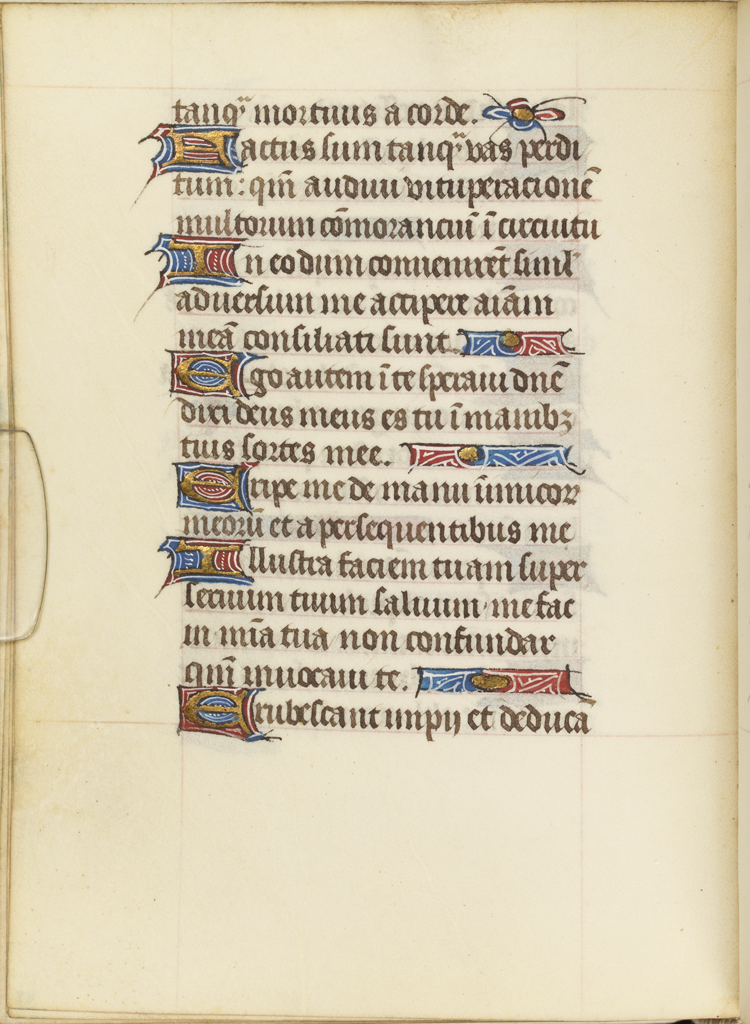 tanqᵃ mortuus a corde.
Factus sum tanqᵃ vas perdi
tum: qm̄ audiui vituperacionē
multorum cōmoranciū ī circuitu
In eo dum conuenirēt simľ
aduersum me accipere aīam
meā consiliati sunt.
Ego autem ī te speraui dnē
dixi deus meus es tu ī manibꝫ
tuis sortes mee.
Eripe me de manu inimicoꝝ
meorū et a persequentibus me
Illustra faciem tuam super
seruum tuum saluum me fac
in mīa tua non confundar
qm̄ inuocaui te.
Erubescant impij et deducā